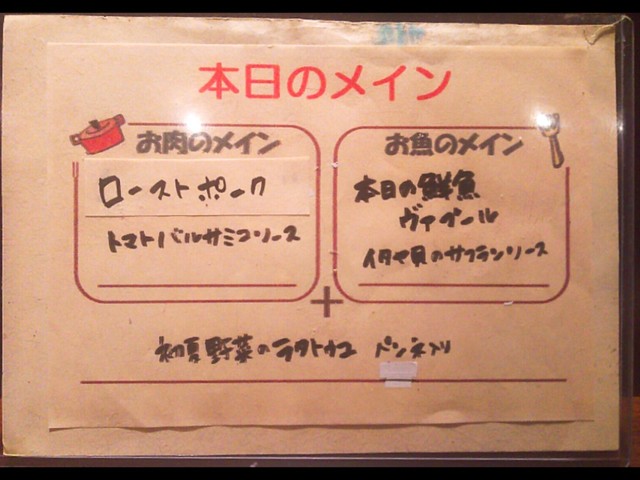 本日のメイン
お肉のメイン
ローストポーク
トマトバルサミコソース
お魚のメイン
本日の鮮魚
ヴァプール
イタヤ貝のサフランソース
+
初夏野菜のラタトゥユ ペンネ入り